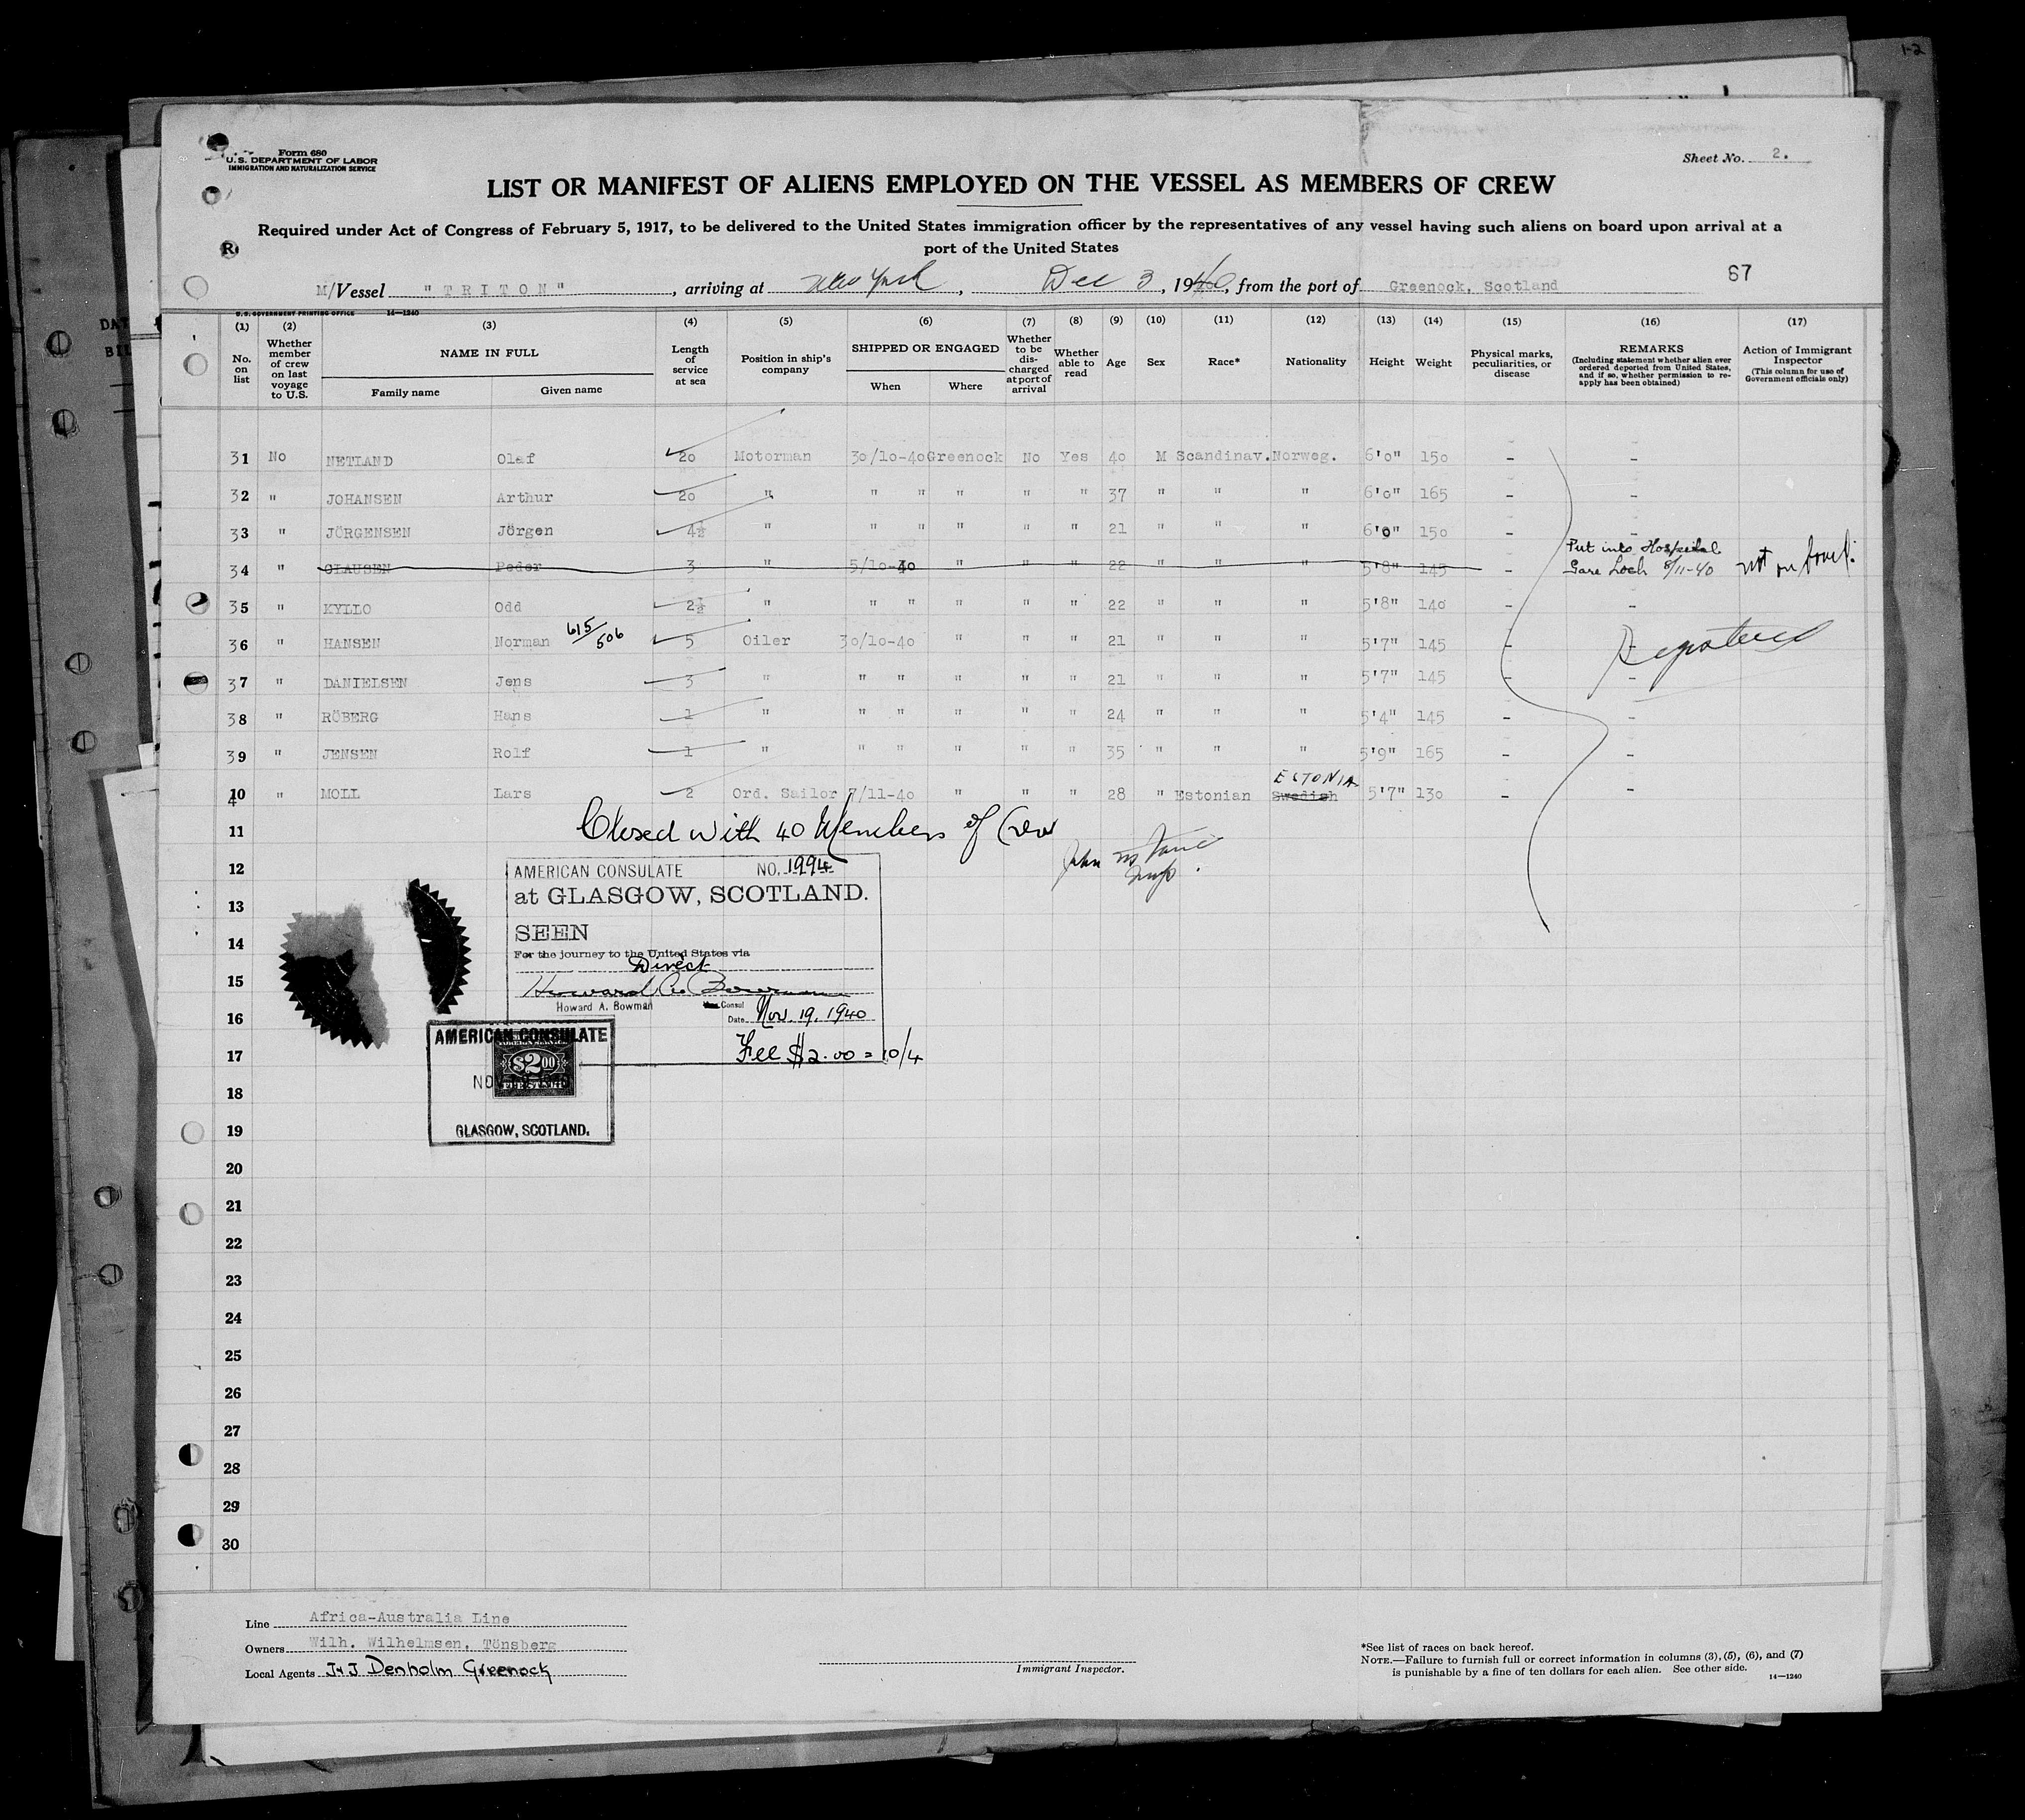 1-2
Form 680
U.S. DEPARTMENT OF LABOR
IMMIGRATION AND NATURALIZATION SERVICE
Sheet No. 2.
LIST OR MANIFEST OF ALIENS EMPLOYED ON THE VESSEL AS MEMBERS OF CREW
Required under Act of Congress of February 5, 1917, to be delivered to the United States immigration officer by the representatives of any vessel having such aliens on board upon arrival at a
port of the United States
M/Vessel "TRITON", arriving at New York, Dec 3, 1940, from the port of Greenock, Scotland
67
U.S. GOVERNMENT PRINTING OFFICE 14—1240
(1) (2) (3) (4) (5) (6) (7) (8) (9) (10) (11) (12) (13) (14) (15) (16) (17)
No. on list
Whether member of crew on last voyage to U.S.
NAME IN FULL
Family name Given name
Length of service at sea
Position in ship's company
SHIPPED OR ENGAGED
When Where
Whether to be discharged at port of arrival
Whether able to read
Age
Sex
Race*
Nationality
Height
Weight
Physical marks, peculiarities, or disease
REMARKS
(Including statement whether alien ever ordered deported from United States, and if so, whether permission to reapply has been obtained)
Action of Immigrant Inspector
(This column for use of Government officials only)
31 No NETLAND Olaf 20 Motorman 30/10-40 Greenock No Yes 40 M Scandinav. Norweg. 6'0" 150 - -
32 " JOHANSEN Arthur 20 " " " " " " 37 " " " 6'0" 165 - -
33 " JÖRGENSEN Jörgen 4½ " " " " " " 21 " " " 6'0" 150 - -
34 " CLAUSEN Peder 3 " 5/10-40 " " " 22 " " " 5'8" 145 - Put into Hospital Gare Loch 8/11-40 not on board.
35 " KYLLO Odd 2½ " " " " " " 22 " " " 5'8" 140 - -
36 " HANSEN Norman 615/506 5 Oiler 30/10-40 " " " 21 " " " 5'7" 145 - -
37 " DANIELSEN Jens 3 " " " " " " 21 " " " 5'7" 145 - -
38 " RÖBERG Hans 1 " " " " " " 24 " " " 5'4" 145 - -
39 " JENSEN Rolf 1 " " " " " " 35 " " " 5'9" 165 - -
40 " MOLL Lars 2 Ord. Sailor 7/11-40 " " " 28 " Estonian Swedish ESTONIA 5'7" 130 - -
Closed with 40 Members of Crew
11
12
13
14
15
16
17
18
19
20
21
22
23
24
25
26
27
28
29
30
AMERICAN CONSULATE NO. 1994
at GLASGOW, SCOTLAND.
SEEN
For the journey to the United States via
Direct
Howard A. Bowman
Howard A. Bowman Consul
Date Nov. 19, 1940
Fee $2.00 = 10/4
AMERICAN CONSULATE
$2.00
FEE STAMP
NOV
GLASGOW, SCOTLAND.
Line Africa-Australia Line
Owners Wilh. Wilhelmsen, Tönsberg
Local Agents J & J Denholm Greenock
Immigrant Inspector.
*See list of races on back hereof.
NOTE.—Failure to furnish full or correct information in columns (3), (5), (6), and (7)
is punishable by a fine of ten dollars for each alien. See other side.
14—1240